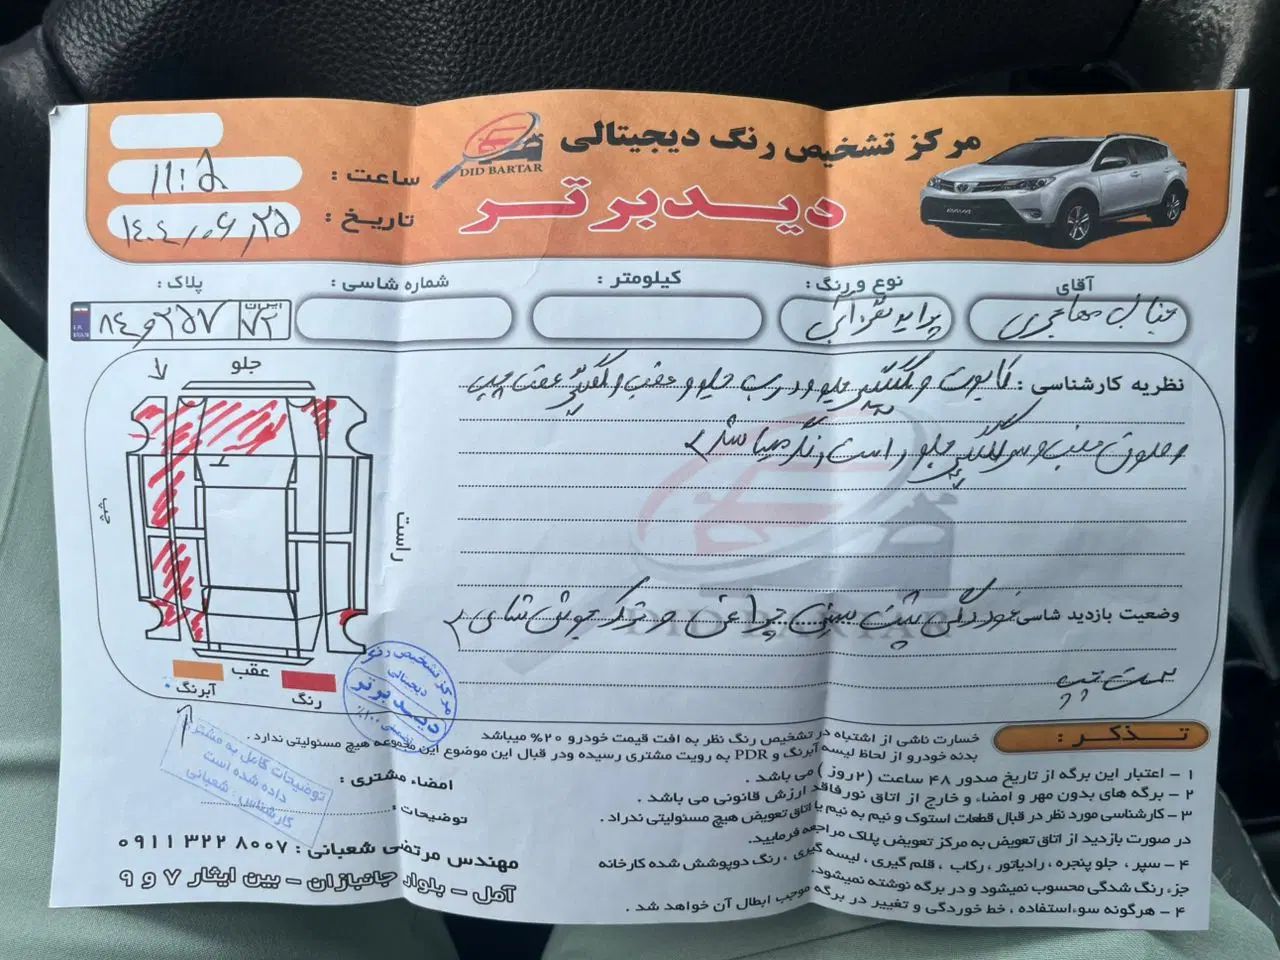 مرکز تشخیص رنگ دیجیتالی
دیـد برتـر
DID BARTAR
ساعت : ۱۱:۵
تاریخ : ۱۴۰۴,۰۶,۲۵
آقای
نوع و رنگ :
کیلومتر :
شماره شاسی :
پلاک :
مهاجری
پراید نقره آبی
ایران
۷۲
۸۴ و ۲۵۷
نظریه کارشناسی : کاپوت و گلگیر جلو و درب جلو و عقب و گلگیر عقب چپ
و صندوق عقب و سرگلگیر جلو راست رنگ میباشد
وضعیت بازدید شاسی : خوردگی پشت سینی چراغ و ترک جوش شاسی
سمت چپ
جلو
چپ
راست
عقب
رنگ
آبرنگ
مرکز تشخیص رنگ
دیجیتالی
دیـد برتـر
توضیحات کامل به مشتری
داده شده است
کارشناس : شعبانی
تـذکـر :
خسارت ناشی از اشتباه در تشخیص رنگ نظر به افت قیمت خودرو ۲۰% میباشد
بدنه خودرو از لحاظ لیسه آبرنگ و PDR به رویت مشتری رسیده ودر قبال این موضوع این مجموعه هیچ مسئولیتی ندارد .
۱ - اعتبار این برگه از تاریخ صدور ۴۸ ساعت (۲روز) می باشد .
۲ - برگه های بدون مهر و امضاء و خارج از اتاق نورفاقد ارزش قانونی می باشد .
۳ - کارشناسی مورد نظر در قبال قطعات استوک و نیم به نیم یا اتاق تعویض هیچ مسئولیتی ندراد .
در صورت بازدید از اتاق تعویض به مرکز تعویض پلاک مراجعه فرمایید.
۴ - سپر ، جلو پنجره ، رادیاتور ، رکاب ، قلم گیری ، لیسه گیری ، رنگ دوپوشش شده کارخانه
جزء رنگ شدگی محسوب نمیشود و در برگه نوشته نمیشود.
۴ - هرگونه سوءاستفاده ، خط خوردگی و تغییر در برگه موجب ابطال آن خواهد شد .
امضاء مشتری :
توضیحات :
مهندس مرتضی شعبانی : ۰۹۱۱ ۳۲۲ ۸۰۰۷
آمل - بلوار جانبازان - بین ایثار ۷ و ۹